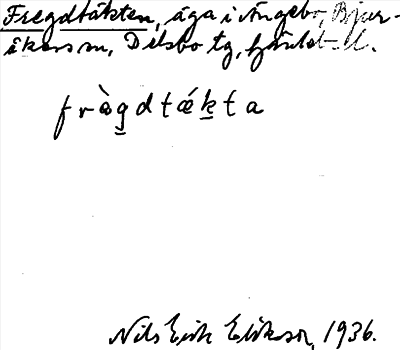 Fregdtäkten, äga i Ängebo, Bjur-
åkers sn, Delsbo tg,
fræ̀g̱dtǽḵta
Nils Erik Eriksson, 1936.